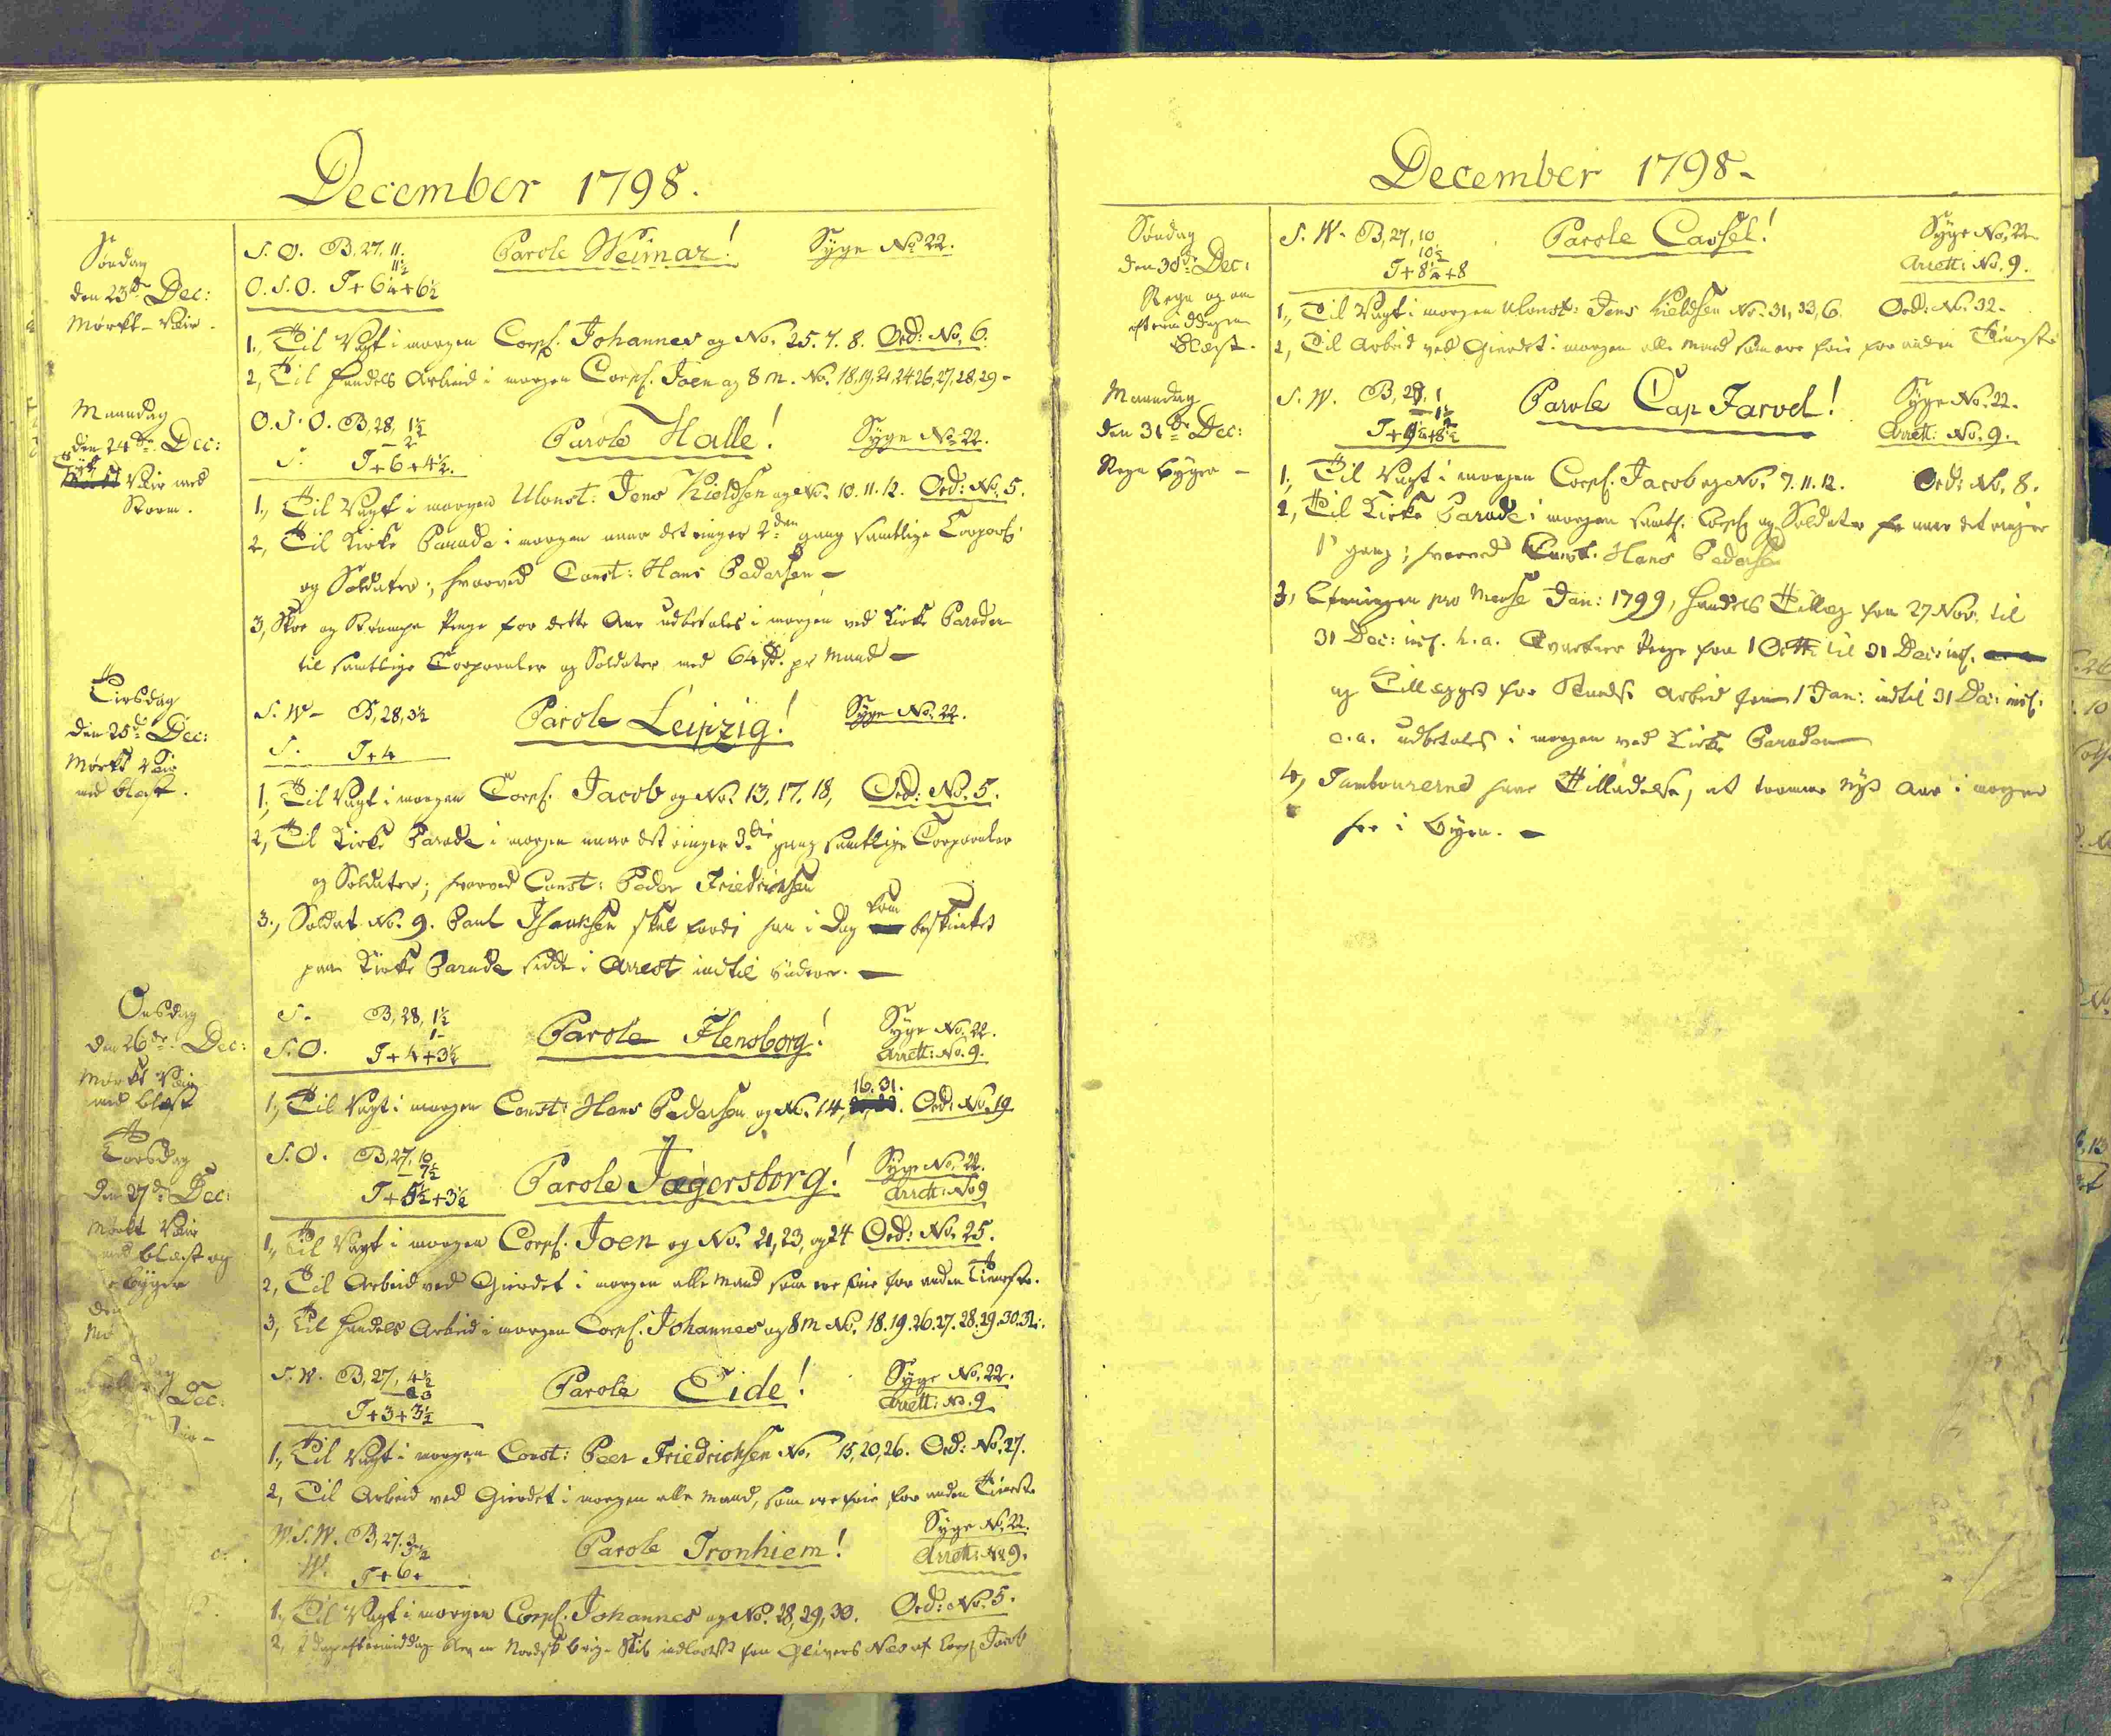 December 1798.
Søndag
den 23de Dec:
Mørkt Veir.
S. O. B, 27, 11.
11½
O. S. O. T+6¼+6½
Parole Weimar!
Syge No 22.
1, Til Vagt i morgen Corpl. Johannes og No. 25. 7. 8. Ord: No. 6.
2, Til Handels Arbeid i morgen Corpl. Joen og 8 M. No. 18, 19, 21, 24 26, 27, 28, 29 -
Maandag
den 24de Dec:
Veir med
Storm.
O. S. O. B, 28, 1½
- 2
S. T+6+4½.
Parole Halle!
Syge No 22.
1, Til Vagt i morgen Ulonst: Jens Kieldsen og No. 10. 11. 12. Ord: No. 5.
2, Til Kirke Parade i morgen naar det ringer 2den gang samtlige Corporl:
og Soldater; hvorved Const: Hans Pedersen -
3, Skoe og Strømpe Penge for dette Aar udbetales i morgen ved Kirke Paraden
til samtlige Corporaler og Soldater med 64 s. pr Mand -
Tirsdag
den 25de Dec:
Mørkt Veir
med blæst.
S. W - B, 28, 3½
S. T+4
Parole Leipzig!
Syge No. 22.
1, Til Vagt i morgen Corpl. Jacob og No. 13, 17, 18, Ord: No. 5.
2, Til Kirke Parade i morgen naar det ringer 3die gang samtlige Corporaler
og Soldater; hvorved Const: Peder Friedrichsen
3, Soldat No. 9. Paul Isaaksen skal fordi han i Dag kom beskienket
paa Kirke Parade sidde i Arrest indtil videre. -
Onsdag
den 26de Dec:
Mørkt Veir
med blæst
S. B, 28, 1½
1 -
S. O. T+4+3½
Parole Flensborg!
Syge No. 22.
Arrett: No. 9.
16. 31.
1, Til Vagt i morgen Const: Hans Pedersen og No. 14, Ord: No. 19
Torsdag
den 27de Dec:
Mørkt Veir
med blæst og
byger
S. O. B, 27, 10
- 7½
T+5½+3½
Parole Jægersborg!
Syge No. 22.
Arrett: No 9
1, Til Vagt i morgen Corpl. Joen og No. 21, 23, og 24 Ord: No. 25.
2, Til Arbeid ved Gierdet i morgen alle Mand som ere frie for anden Tieneste.
3, Til Handels Arbeid i morgen Corpl. Johannes og 8 M No. 18. 19. 26. 27. 28. 29. 30. 31.
den
Dec:
S. W. B, 27, 4½
3
T+3+3½
Parole Eide!
Syge No. 22.
Arrett: No. 9
1, Til Vagt i morgen Const: Peer Friedrichsen No. 15, 20, 26. Ord: No. 27.
2, Til Arbeid ved Gierdet i morgen alle Mand, som ere frie for anden Tieneste
W. S. W. B, 27. 3
3½
W. T+6+
Parole Tronhiem!
Syge No. 22.
Arrett: No 9.
1, Til Vagt i morgen Corpl. Johannes og No. 28, 29, 30. Ord: No. 5.
2, I Dag eftermiddag blev en Nordsk brig-Skib indlodset fra Olivers Næs af Corpl Jacob
December 1798-
Søndag
den 30de Dec:
Regn og om
eftermiddagen
blæst.
S. W - B, 27, 10
10½
T+8¼+8
Parole Cassel!
Syge No. 22
Arrett: No. 9.
1, Til Vagt i morgen Ulonst: Jens Kieldsen No. 31, 33, 6. Ord: No. 32-
2, Til Arbeid ved Gierdet i morgen alle Mand som ere frie for anden Tieneste
Maandag
den 31te Dec:
Regn byger -
S. W. B, 28, 1
- 1½
Parole Cap Farvel!
Syge No. 22.
Arrett: No. 9.
1, Til Vagt i morgen Corpl. Jacob og No. 7. 11. 12. Ord: No. 8.
2, Til Kirke Parade i morgen samtl. Corpl og Soldater naar det ringer
1e gang; hvorved Const. Hans Pedersen
3, pro Mense Jan: 1799, Handels Tillæg fra 27 Nov. til
31 Dec: incl. h. a. Qvarteer Penge fra 1 Octbr. til 31 Dec: incl.
og Tillægget for Arbeid fra 1 Jan: indtil 31 Dec: incl.
c. a. udbetales i morgen ved Kirke Paraden
4, Tambourerne have Tilladelse, at tromme nyt Aar i morgen
her i byen. -